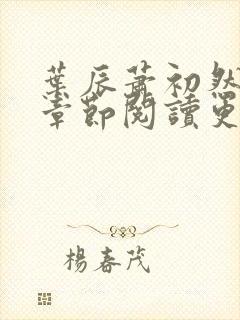 葉辰蕭初然
章節閱讀更
楊春茂